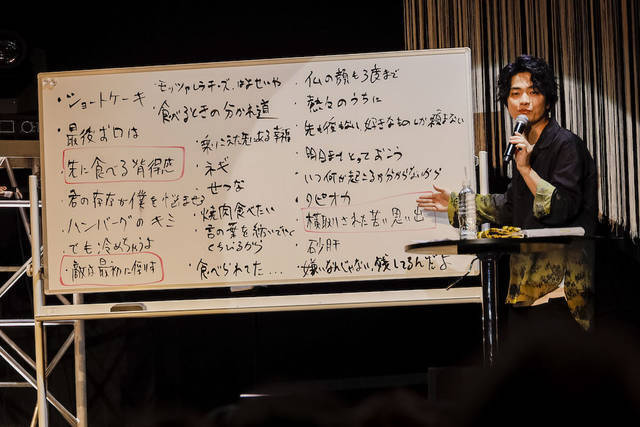 ・ショートケーキ
・最後お口は
先に食べる背徳感
君の存在が僕を悩ませる
ハンバーグのキミ
でも冷めちゃうよ
・敵は最初に倒す
・モッツァレラチーズ、はよせいや
・食べるときの分かれ道
・楽にえた先にある幸福
・ネギ
・せつな
・焼肉食べたい
言の葉を紡いでいく
くちびるから
・食べられてた...
・仏の顔も3度まで
・熱々のうちに
・先も後もない、好きなものしか頼まない
・明日までとっておこう
・いつ何が起こるか分からないから
・タピオカ
横取りされた苦い思い出
・砂肝
・嫌いなんじゃない、残してるんだよ